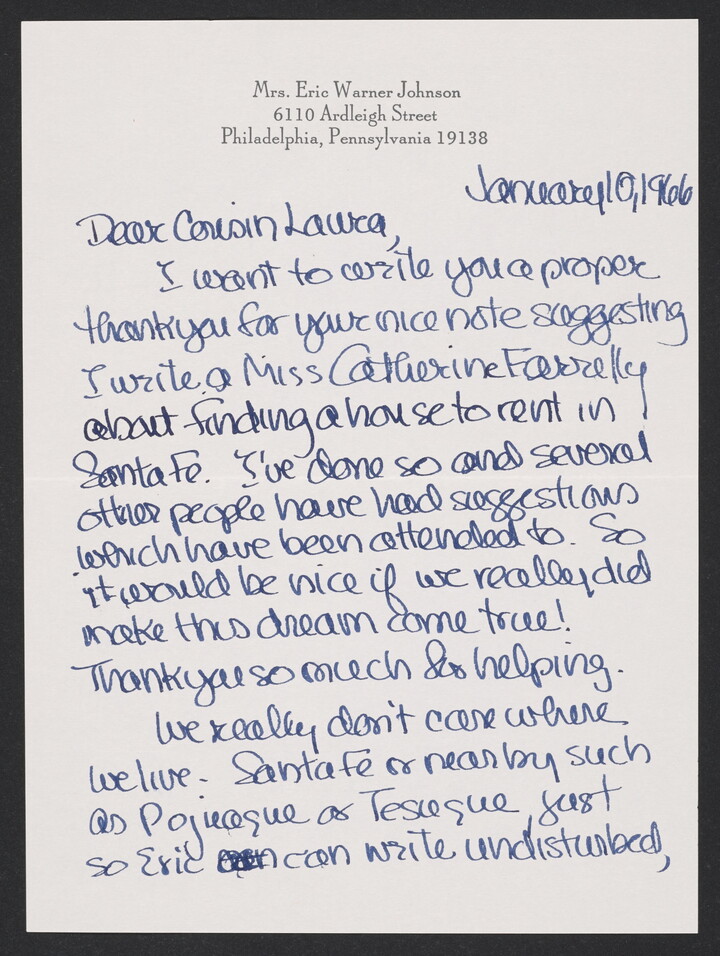 Mrs. Eric Warner Johnson
6110 Ardleigh Street
Philadelphia, Pennsylvania 19138
January 10, 1966
Dear Cousin Laura,
I want to write you a proper
thank you for your nice note suggesting
I write a Miss Catherine Farrelly
about finding a house to rent in
Santa Fe. I've done so and several
other people have had suggestions
which have been attended to. So
it would be nice if we really did
make this dream come true!
Thank you so much for helping.
We really don't care where
we live - Santa Fe or nearby such
as Pojuaque or Tesuque, just
so Eric can write undisturbed,